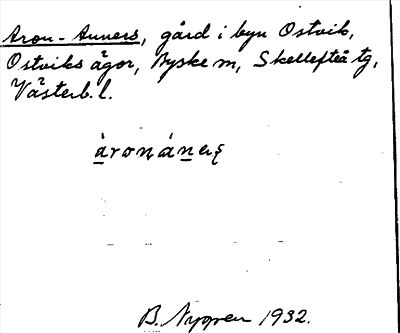 Aron-Anners, gård i byn Ostvik,
Ostviks ägor, Byske m, Skellefteå tg,
Västerb. l.
àronánerş
B. Nygren 1932.